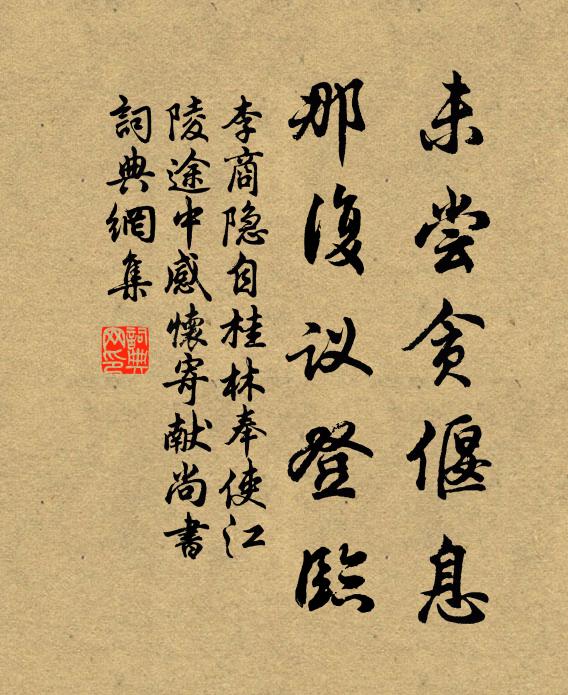 未尝贪偃息
那復议登臨
李商隐自桂林奉使江
陵途中感懷寄献尚書
詞典網集
詞典
网印